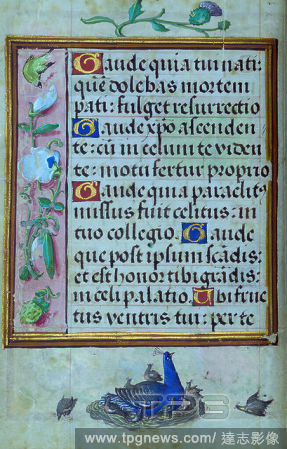 Gaude quia tui nati:
quē dolebas mortem
pati: fulget resurrectio
Gaude xpō ascenden
te: cū in celum te viden
te: motu fertur proprio
Gaude quia paraclitꝰ
missus fuit celitus: in
tuo collegio. Gaude
que post ipsum scādis:
et est honor tibi grādis:
in celi palatio. Ubi fruc
tus ventris tui: per te
TPG
www.tpgnews.com/ 達志影像